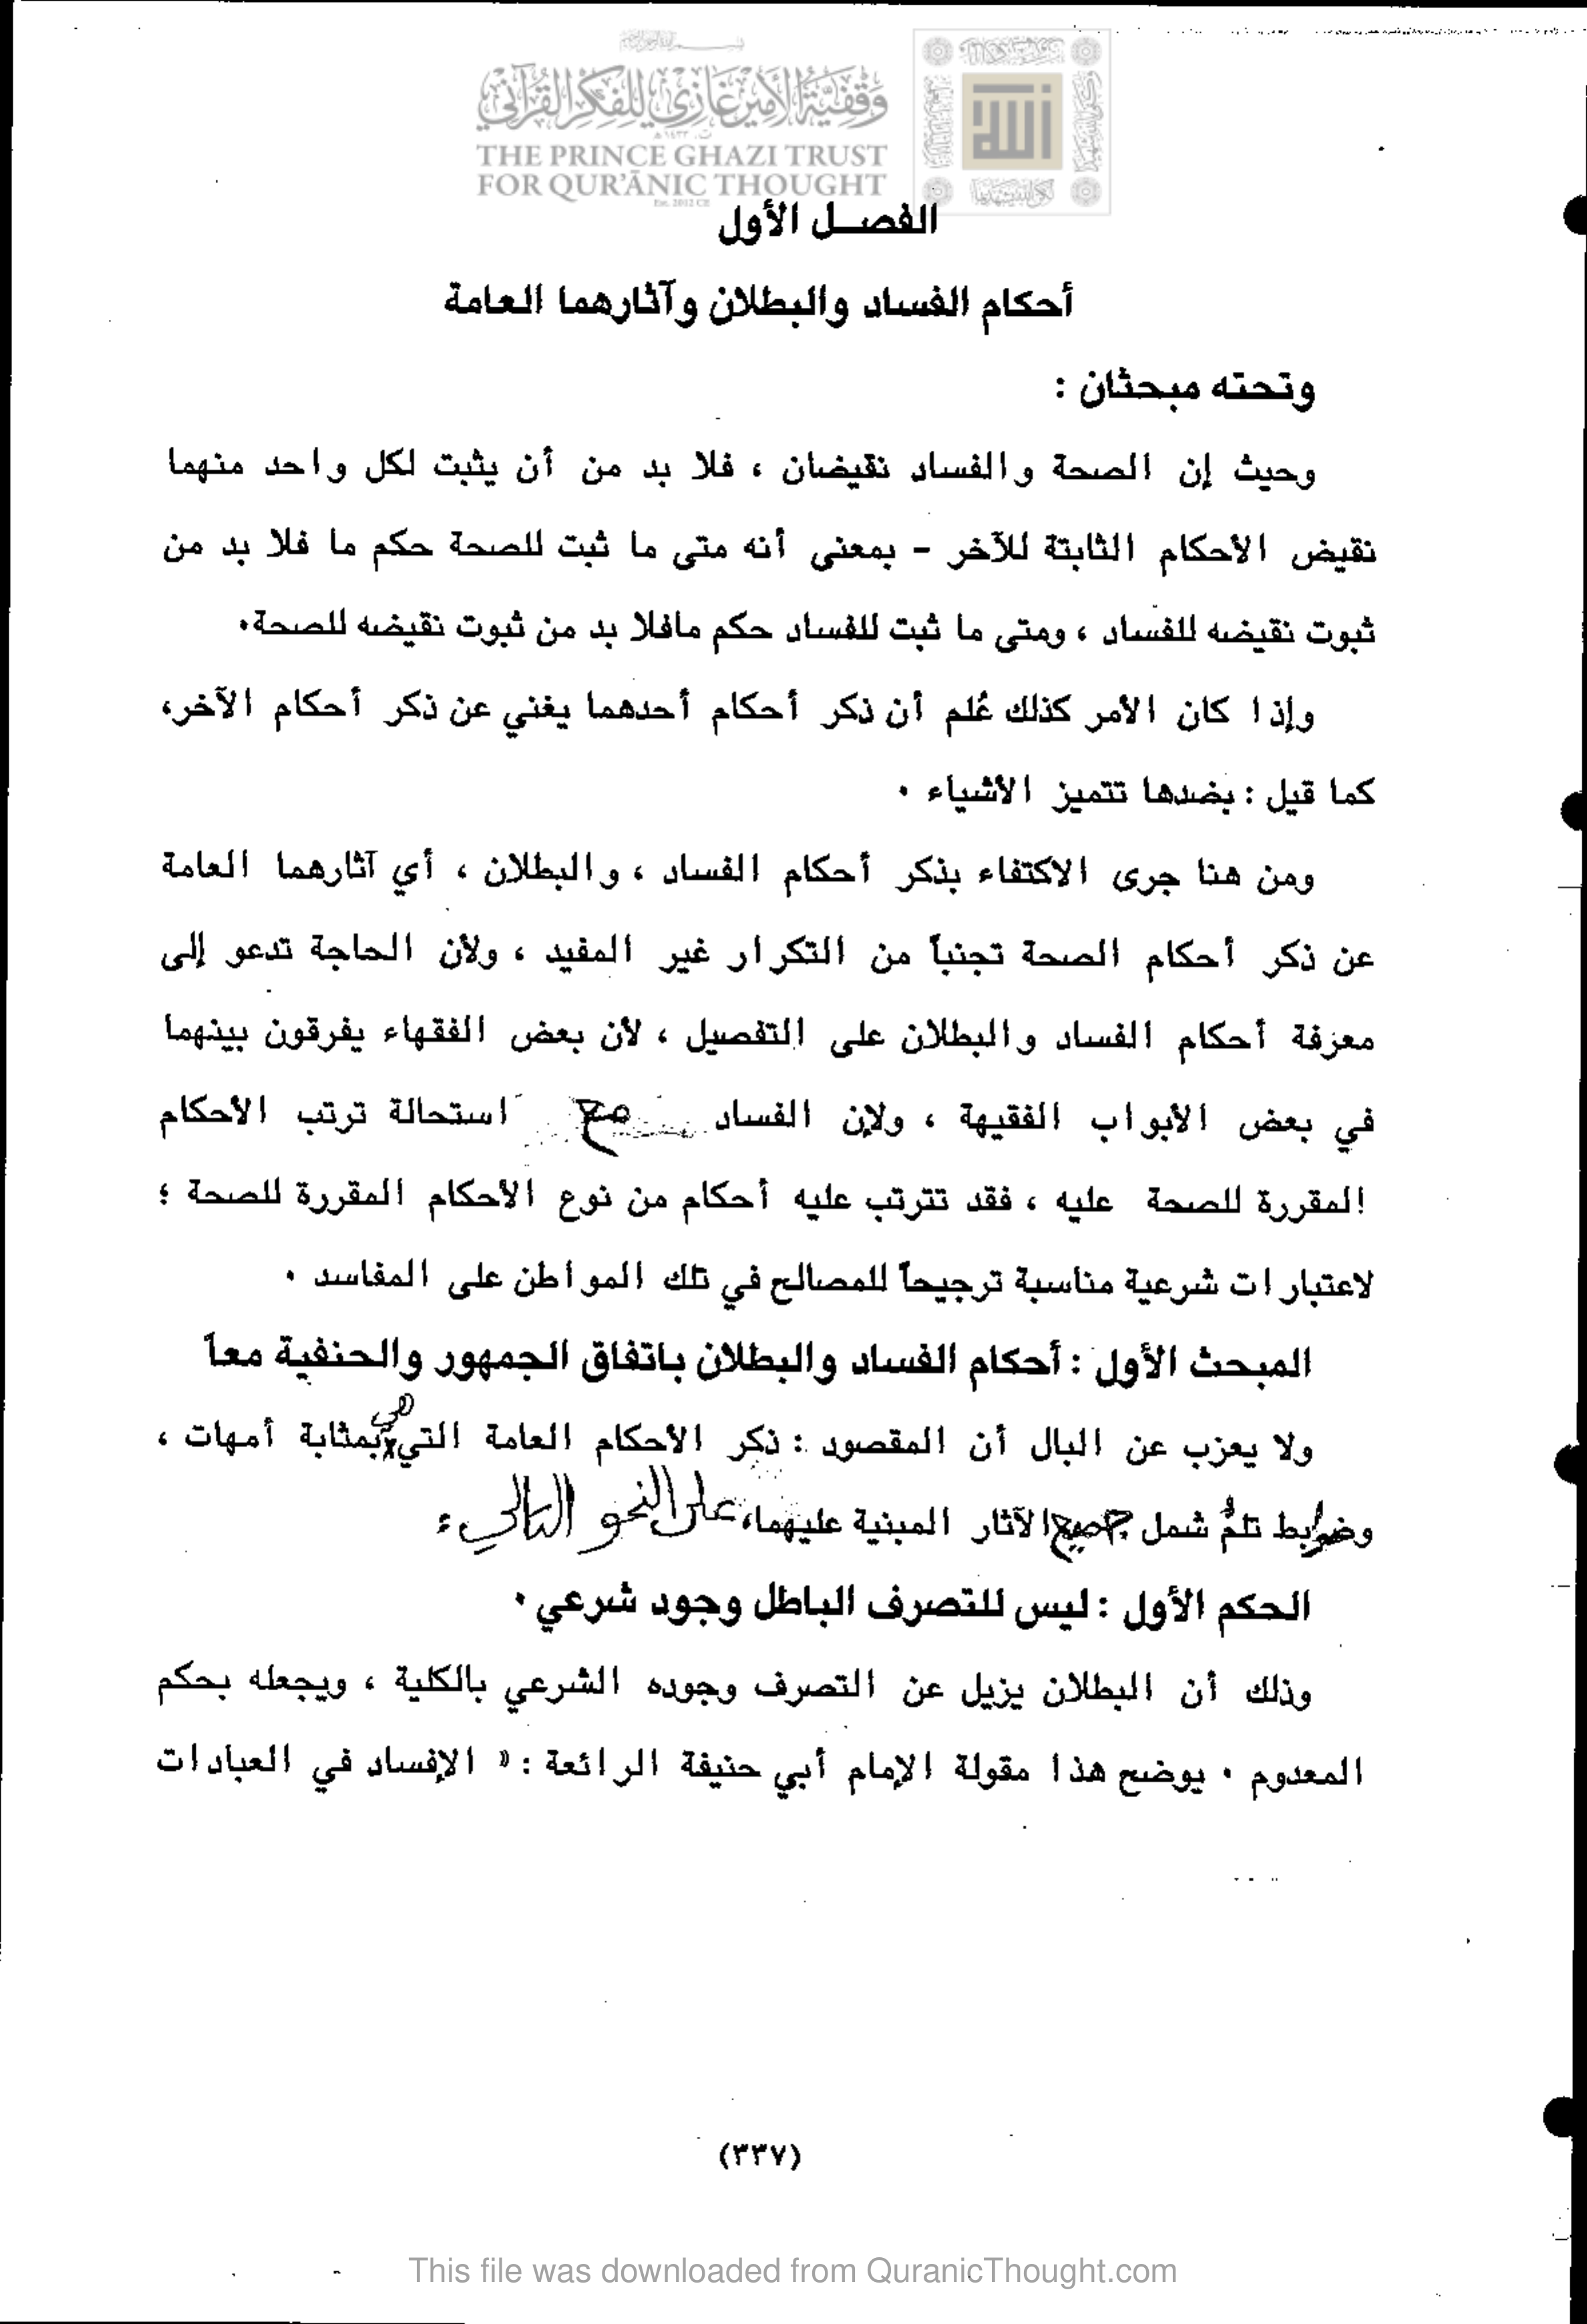 وقفية الأمير غازي للفكر القرآني
THE PRINCE GHAZI TRUST
FOR QUR'ĀNIC THOUGHT
Est. 2012 CE
الفصــل الأول
أحكام الفساد والبطلان وآثارهما العامة
وتحته مبحثان :
وحيث إن الصحة والفساد نقيضان ، فلا بد من أن يثبت لكل واحد منهما
نقيض الأحكام الثابتة للآخر – بمعنى أنه متى ما ثبت للصحة حكم ما فلا بد من
ثبوت نقيضه للفساد ، ومتى ما ثبت للفساد حكم مافلا بد من ثبوت نقيضه للصحة.
وإذا كان الأمر كذلك عُلم أن ذكر أحكام أحدهما يغني عن ذكر أحكام الآخر،
كما قيل : بضدها تتميز الأشياء .
ومن هنا جرى الاكتفاء بذكر أحكام الفساد ، والبطلان ، أي آثارهما العامة
عن ذكر أحكام الصحة تجنباً من التكرار غير المفيد ، ولأن الحاجة تدعو إلى
معرفة أحكام الفساد والبطلان على التفصيل ، لأن بعض الفقهاء يفرقون بينهما
في بعض الأبواب الفقيهة ، ولإن الفساد مع استحالة ترتب الأحكام
المقررة للصحة عليه ، فقد تترتب عليه أحكام من نوع الأحكام المقررة للصحة ؛
لاعتبارات شرعية مناسبة ترجيحاً للمصالح في تلك المواطن على المفاسد .
المبحث الأول : أحكام الفساد والبطلان باتفاق الجمهور والحنفية معاً
ولا يعزب عن البال أن المقصود : ذكر الأحكام العامة التي هي بمثابة أمهات ،
وضوابط تلمُّ شمل جميع الآثار المبنية عليهما، على النحو التالي :
الحكم الأول : ليس للتصرف الباطل وجود شرعي .
وذلك أن البطلان يزيل عن التصرف وجوده الشرعي بالكلية ، ويجعله بحكم
المعدوم . يوضح هذا مقولة الإمام أبي حنيفة الرائعة : « الإفساد في العبادات
(٣٣٧)
This file was downloaded from QuranicThought.com